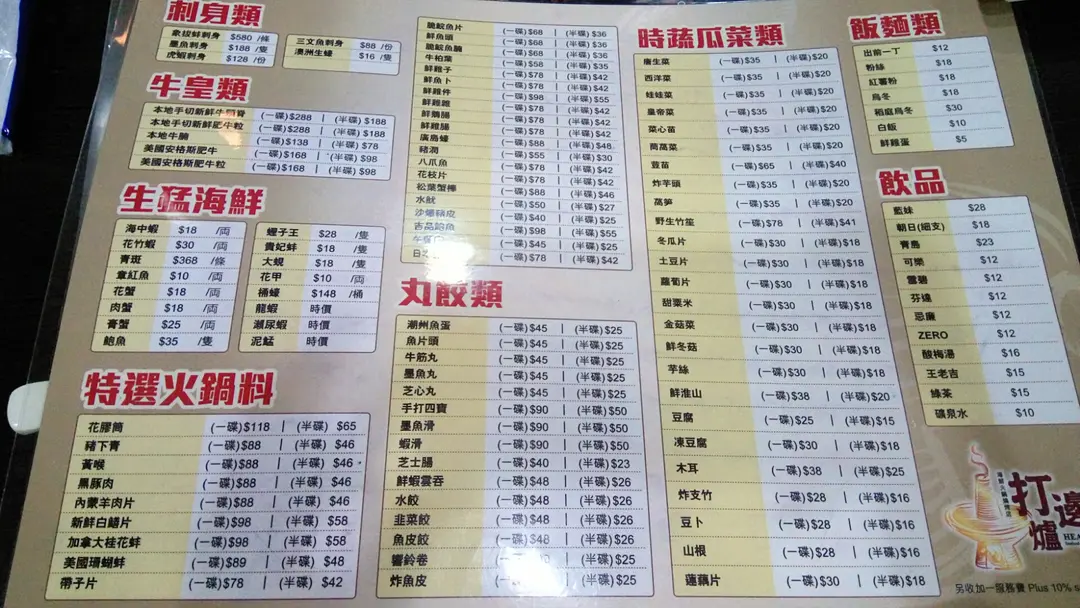 刺身類
象拔蚌刺身 $580 /條
墨魚刺身 $188 /隻
虎蝦刺身 $128 /份
三文魚刺身 $88 /份
澳洲生蠔 $16 /隻
牛皇類
本地手切新鮮牛 (一碟)$288 | (半碟)$188
本地手切新鮮肥牛粒 (一碟)$288 | (半碟)$188
本地牛腩 (一碟)$138 | (半碟)$78
美國安格斯肥牛 (一碟)$168 | (半碟)$98
美國安格斯肥牛粒 (一碟)$168 | (半碟)$98
生猛海鮮
海中蝦 $18 /両
花竹蝦 $30 /両
青斑 $368 /條
章紅魚 $10 /両
花蟹 $18 /両
肉蟹 $18 /両
膏蟹 $25 /両
鮑魚 $35 /隻
蟶子王 $28 /隻
貴妃蚌 $18 /隻
大蜆 $18 /隻
花甲 $10 /両
桶蠔 $148 /桶
龍蝦 時價
瀨尿蝦 時價
泥鯭 時價
特選火鍋料
花膠筒 (一碟)$118 | (半碟) $65
豬下青 (一碟)$88 | (半碟) $46
黃喉 (一碟)$88 | (半碟) $46
黑豚肉 (一碟)$88 | (半碟) $46
內蒙羊肉片 (一碟)$88 | (半碟) $46
新鮮白鱔片 (一碟)$98 | (半碟) $58
加拿大桂花蚌 (一碟)$98 | (半碟) $58
美國珊瑚蚌 (一碟)$89 | (半碟) $48
帶子片 (一碟)$78 | (半碟) $42
脆鯇魚片 (一碟)$68 | (半碟)$36
鮮魚頭 (一碟)$68 | (半碟)$36
脆鯇魚腩 (一碟)$68 | (半碟)$36
牛柏葉 (一碟)$58 | (半碟)$35
鮮雞子 (一碟)$78 | (半碟)$42
鮮魚卜 (一碟)$78 | (半碟)$42
鮮雞件 (一碟)$98 | (半碟)$55
鮮雞雜 (一碟)$78 | (半碟)$42
鮮鵝腸 (一碟)$78 | (半碟)$42
鮮雞腸 (一碟)$78 | (半碟)$42
廣島蠔 (一碟)$88 | (半碟)$48
豬潤 (一碟)$55 | (半碟)$30
八爪魚 (一碟)$78 | (半碟)$42
花枝片 (一碟)$78 | (半碟)$42
松葉蟹棒 (一碟)$88 | (半碟)$46
水魷 (一碟)$50 | (半碟)$27
沙爆豬皮 (一碟)$40 | (半碟)$25
吉品鮑魚 (一碟)$98 | (半碟)$55
(一碟)$45 | (半碟)$25
(一碟)$78 | (半碟)$42
丸餃類
潮州魚蛋 (一碟)$45 | (半碟)$25
魚片頭 (一碟)$45 | (半碟)$25
牛筋丸 (一碟)$45 | (半碟)$25
墨魚丸 (一碟)$45 | (半碟)$25
芝心丸 (一碟)$45 | (半碟)$25
手打四寶 (一碟)$90 | (半碟)$50
墨魚滑 (一碟)$90 | (半碟)$50
蝦滑 (一碟)$90 | (半碟)$50
芝士腸 (一碟)$40 | (半碟)$23
鮮蝦雲吞 (一碟)$48 | (半碟)$26
水餃 (一碟)$48 | (半碟)$26
韭菜餃 (一碟)$48 | (半碟)$26
魚皮餃 (一碟)$48 | (半碟)$26
響鈴卷 (一碟)$45 | (半碟)$25
炸魚皮 (一碟)$45 | (半碟)$25
時蔬瓜菜類
唐生菜 (一碟)$35 | (半碟)$20
西洋菜 (一碟)$35 | (半碟)$20
娃娃菜 (一碟)$35 | (半碟)$20
皇帝菜 (一碟)$35 | (半碟)$20
菜心苗 (一碟)$35 | (半碟)$20
茼萵菜 (一碟)$35 | (半碟)$20
荳苗 (一碟)$65 | (半碟)$40
炸芋頭 (一碟)$35 | (半碟)$20
萵筍 (一碟)$35 | (半碟)$20
野生竹笙 (一碟)$78 | (半碟)$41
冬瓜片 (一碟)$30 | (半碟)$18
土豆片 (一碟)$30 | (半碟)$18
蘿蔔片 (一碟)$30 | (半碟)$18
甜粟米 (一碟)$30 | (半碟)$18
金菇菜 (一碟)$30 | (半碟)$18
鮮冬菇 (一碟)$30 | (半碟)$18
芋絲 (一碟)$30 | (半碟)$18
鮮淮山 (一碟)$38 | (半碟)$20
豆腐 (一碟)$25 | (半碟)$15
凍豆腐 (一碟)$30 | (半碟)$18
木耳 (一碟)$38 | (半碟)$25
炸支竹 (一碟)$28 | (半碟)$16
豆卜 (一碟)$28 | (半碟)$16
山根 (一碟)$28 | (半碟)$16
蓮藕片 (一碟)$30 | (半碟)$18
飯麵類
出前一丁 $12
粉絲 $18
紅薯粉 $18
烏冬 $18
稻庭烏冬 $30
白飯 $10
鮮雞蛋 $5
飲品
藍妹 $28
朝日(細支) $18
青島 $23
可樂 $12
雪碧 $12
芬達 $12
忌廉 $12
ZERO $12
酸梅湯 $16
王老吉 $15
綠茶 $15
礦泉水 $10
打邊爐
另收加一服務費 Plus 10%